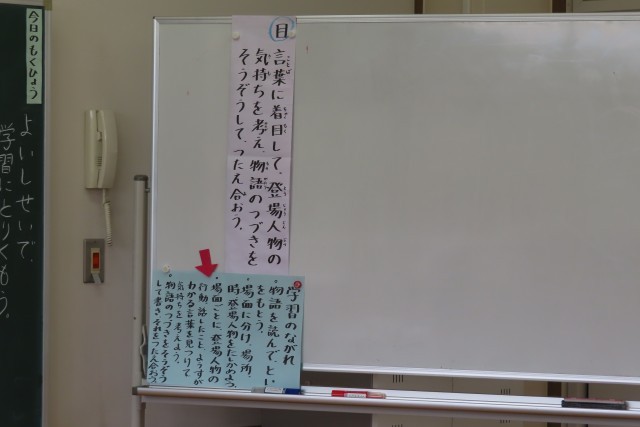 今日のもくひょう
よいしせいで、
学習にとりくもう。
目
言葉に着目して、登場人物の
気持ちを考え、物語のつづきを
そうぞうして、つたえ合おう。
学習のながれ
・物語を読んで、とい
をもとう。
・場面に分け、場所、
時、登場人物をたしかめよう。
・場面ごとに、登場人物の
行動、話したこと、ようすが
わかる言葉を見つけて
気持ちを考えよう。
・物語のつづきをそうぞう
して書き、それをつたえ合おう。